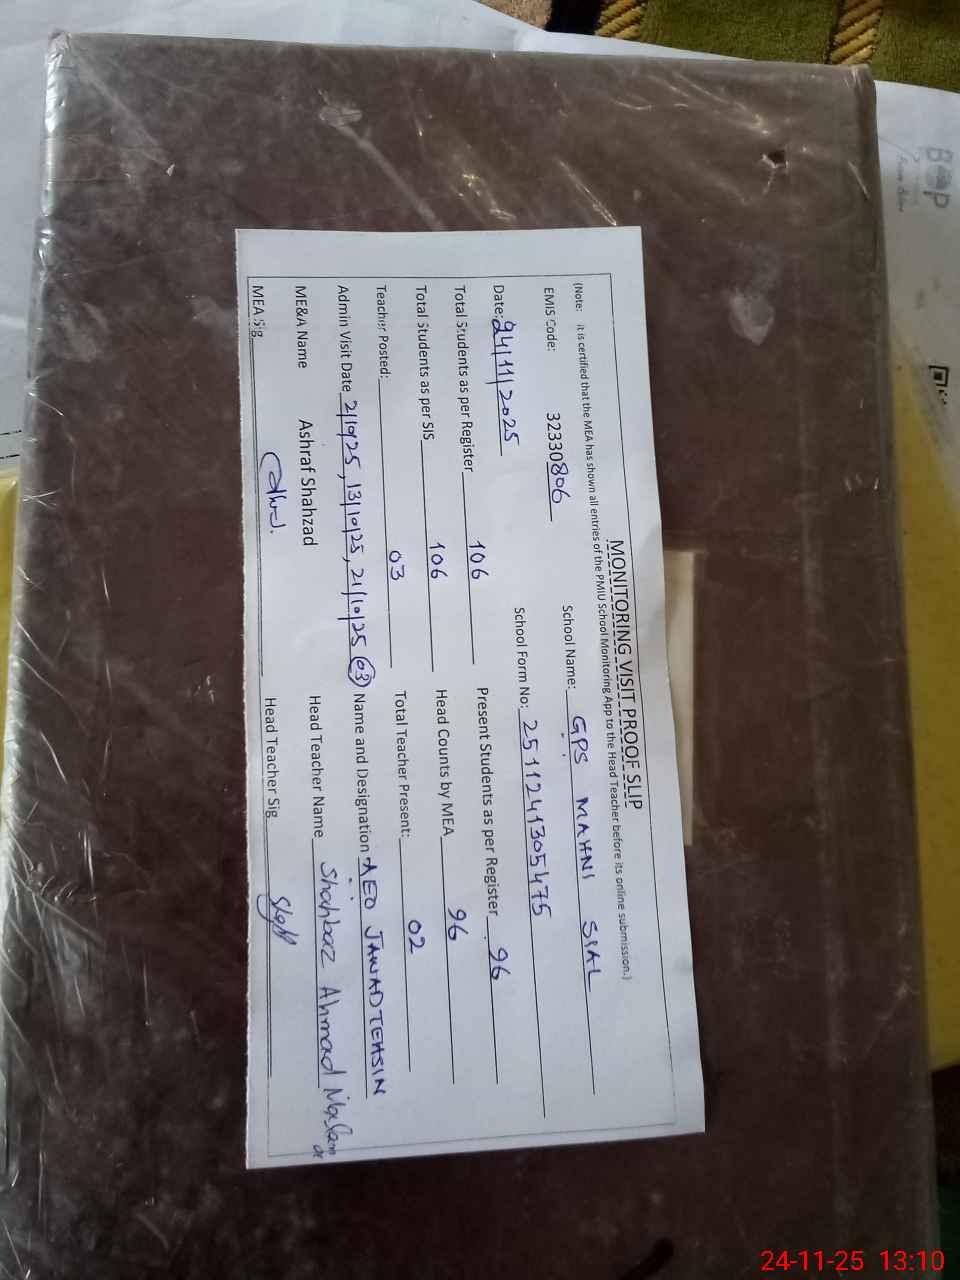 MONITORING VISIT PROOF SLIP
(Note: it is certified that the MEA has shown all entries of the PMIU School Monitoring App to the Head Teacher before its online submission.)
EMIS Code: 32330806 School Name: GPS MAHNI SIAL
Date: 24/11/2025 School Form No: 2511241305475
Total Students as per Register 106 Present Students as per Register 96
Total Students as per SIS 106 Head Counts by MEA 96
Teacher Posted: 03 Total Teacher Present: 02
Admin Visit Date 2/10/25, 13/10/25, 21/10/25 03 Name and Designation AEO JAWAD TEHSIN
ME&A Name Ashraf Shahzad Head Teacher Name Shahbaz Ahmad
MEA Sig Head Teacher Sig
BOP
24-11-25 13:10